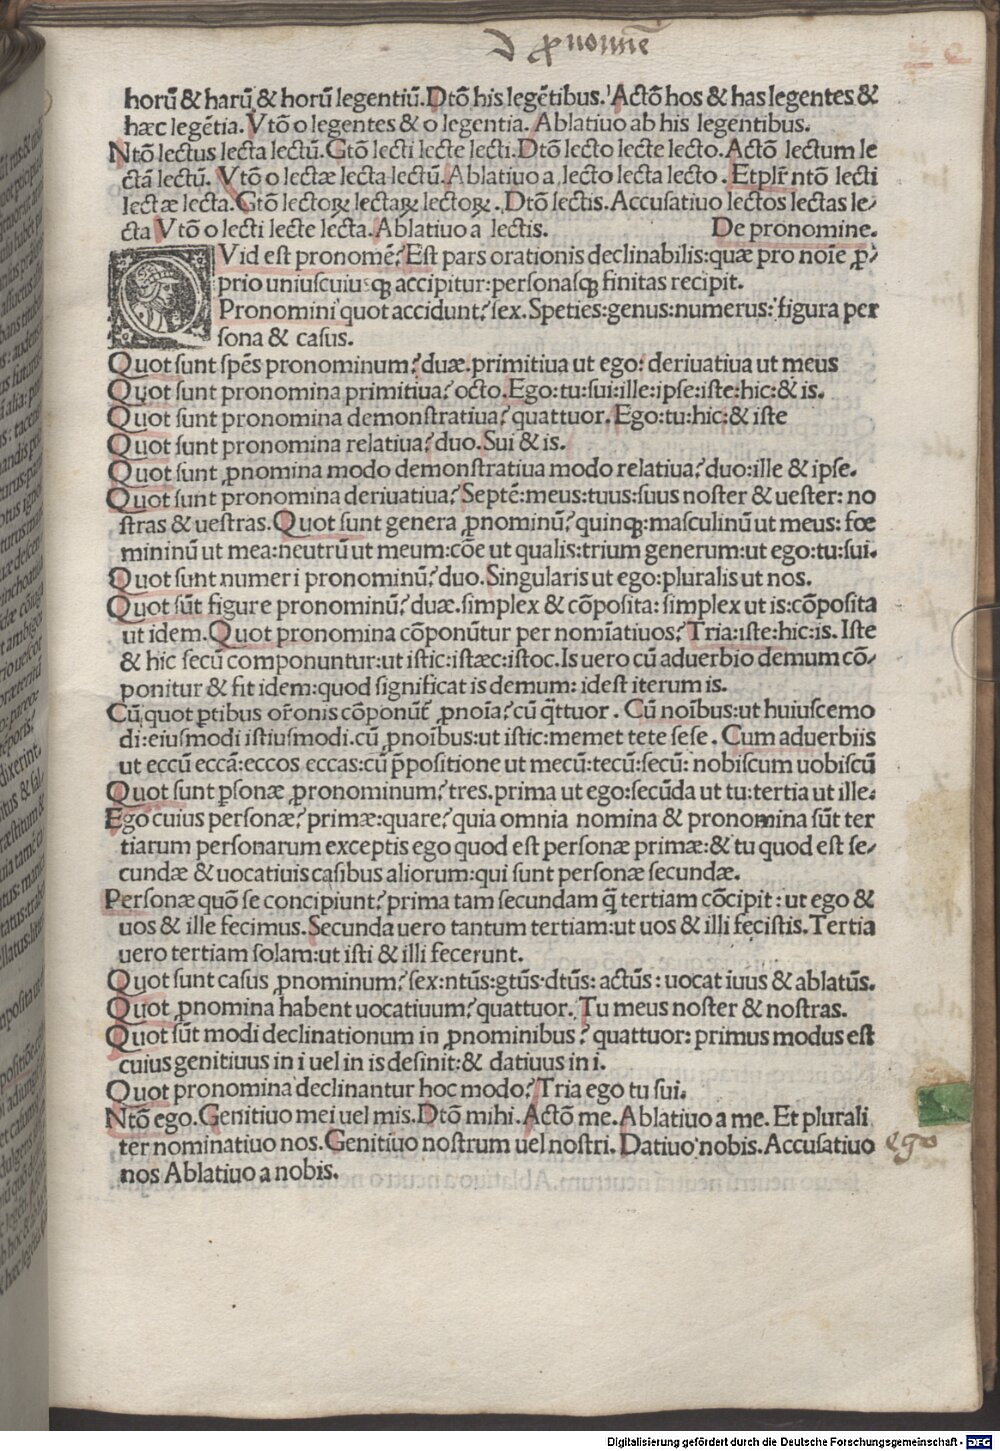 De ꝓnomine
horū & harū & horū legentiū. Dtō his legētibus. Actō hos & has legentes &
hæc legētia. Vtō o legentes & o legentia. Ablatiuo ab his legentibus.
Ntō lectus lecta lectū. Gtō lecti lecte lecti. Dtō lecto lecte lecto. Actō lectum le
ctā lectū. Vtō o lectæ lecta lectū. Ablatiuo a lecto lecta lecto. Et plr̄ ntō lecti
lectæ lecta. Gtō lectoꝝ lectaꝝ lectoꝝ. Dtō lectis. Accusatiuo lectos lectas le-
cta Vtō o lecti lecte lecta. Ablatiuo a lectis. De pronomine.
QVid est pronomē? Est pars orationis declinabilis: quæ pro noīe ꝓ-
prio uniuscuiusqꝫ accipitur: personasqꝫ finitas recipit.
Pronomini quot accidunt? sex. Speties: genus: numerus: figura per
sona & casus.
Quot sunt spēs pronominum? duæ. primitiua ut ego: deriuatiua ut meus
Quot sunt pronomina primitiua? octo. Ego: tu: sui: ille: ipse: iste: hic: & is.
Quot sunt pronomina demonstratiua? quattuor. Ego: tu: hic: & iste
Quot sunt pronomina relatiua? duo. Sui & is.
Quot sunt ꝓnomina modo demonstratiua modo relatiua? duo: ille & ipse.
Quot sunt pronomina deriuatiua? Septē: meus: tuus: suus noster & uester: no
stras & uestras. Quot sunt genera ꝓnominū? quinqꝫ: masculinū ut meus: fœ
mininū ut mea: neutrū ut meum: cōe ut qualis: trium generum: ut ego: tu: sui.
Quot sunt numeri pronominū? duo. Singularis ut ego: pluralis ut nos.
Quot sūt figure pronominū? duæ. simplex & cōposita: simplex ut is: cōposita
ut idem. Quot pronomina cōponūtur per nomīatiuos? Tria: iste: hic: is. Iste
& hic secū componuntur: ut istic: istæc: istoc. Is uero cū aduerbio demum cō-
ponitur & fit idem: quod significat is demum: idest iterum is.
Cū quot ꝑtibus or̄onis cōponūt̄ ꝓnoīa? cū q̄ttuor. Cū noībus: ut huiuscemo
di: eiusmodi istiusmodi. cū ꝓnoībus: ut istic: memet tete sese. Cum aduerbiis
ut eccū eccā: eccos eccas: cū p̄positione ut mecū: tecū: secū: nobiscum uobiscū
Quot sunt ꝑsonæ ꝓronominum? tres. prima ut ego: secūda ut tu: tertia ut ille.
Ego cuius personæ? primæ: quare? quia omnia nomina & pronomina sūt ter
tiarum personarum exceptis ego quod est personæ primæ: & tu quod est se-
cundæ & uocatiuis casibus aliorum: qui sunt personæ secundæ.
Personæ quō se concipiunt? prima tam secundam q̄ tertiam cōcipit: ut ego &
uos & ille fecimus. Secunda uero tantum tertiam: ut uos & illi fecistis. Tertia
uero tertiam solam: ut isti & illi fecerunt.
Quot sunt casus ꝓnominum? sex: ntūs: gtūs: dtūs: actūs: uocatiuus & ablatūs.
Quot ꝓnomina habent uocatiuum? quattuor. Tu meus noster & nostras.
Quot sūt modi declinationum in ꝓnominibus? quattuor: primus modus est
cuius genitiuus in i uel in is desinit: & datiuus in i.
Quot pronomina declinantur hoc modo? Tria ego tu sui.
Ntō ego. Genitiuo mei uel mis. Dtō mihi. Actō me. Ablatiuo a me. Et plurali
ter nominatiuo nos. Genitiuo nostrum uel nostri. Datiuo nobis. Accusatiuo
nos Ablatiuo a nobis.
ego
Digitalisierung gefördert durch die Deutsche Forschungsgemeinschaft - DFG